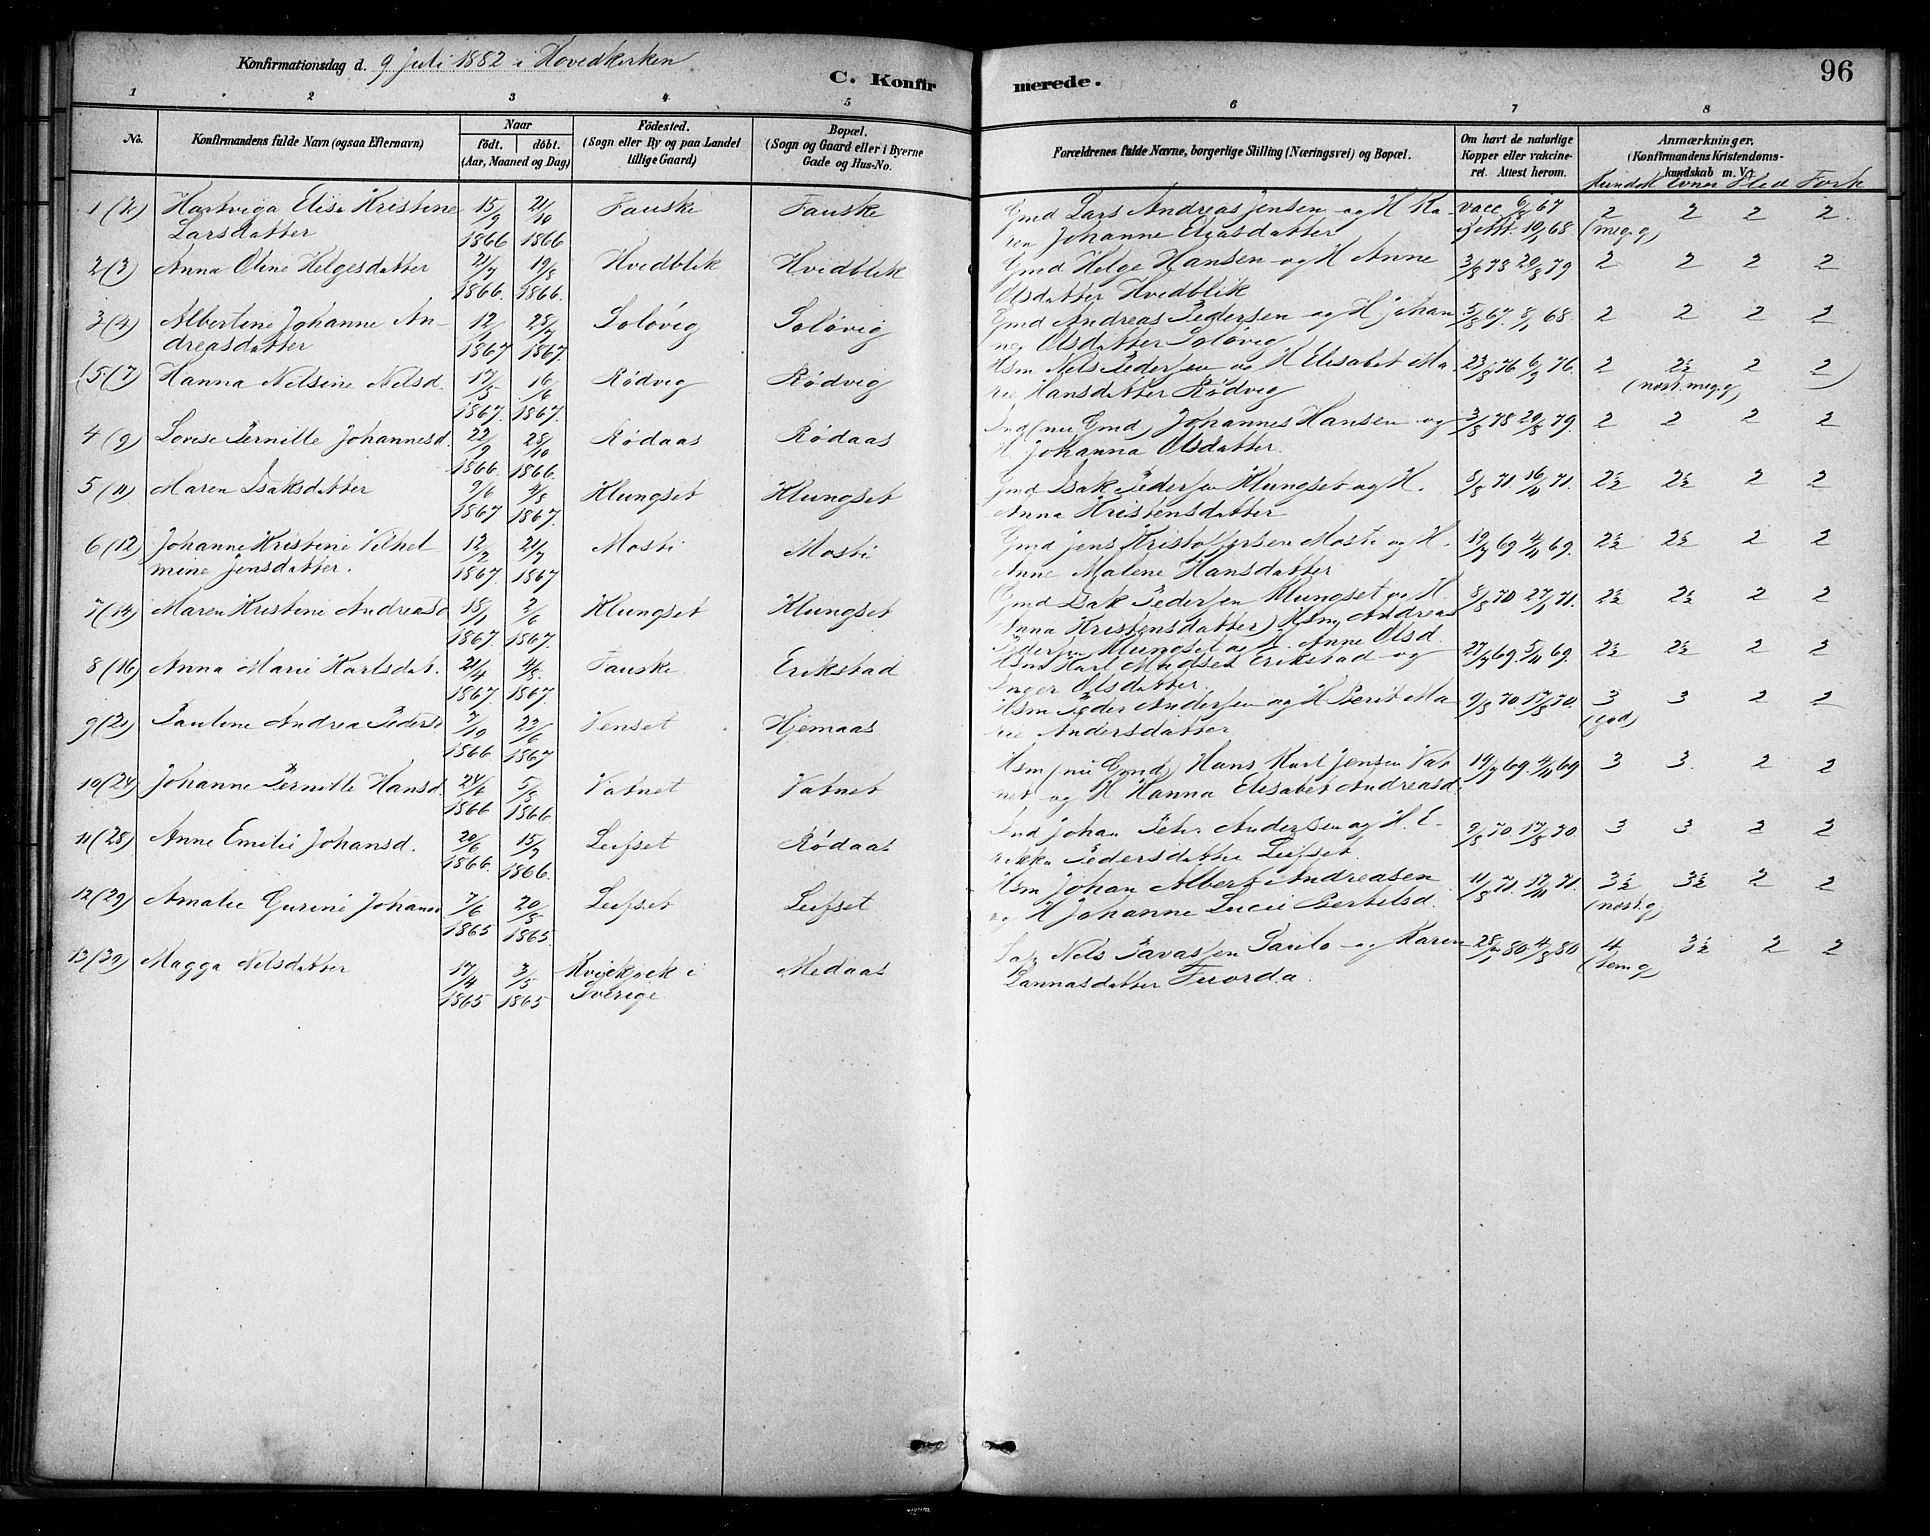 96
Konfirmationsdag d. 9 Juli 1882 i Hovedkirken
C. Konfirmerede.
1 2 3 4 5 6 7 8
No.
Konfirmandens fulde Navn (ogsaa Efternavn)
Naar
födt. döbt.
(Aar, Maaned og Dag)
Födested.
(Sogn eller By og paa Landet
tillige Gaard)
Bopæl.
(Sogn og Gaard eller i Byerne
Gade og Hus-No.
Forældrenes fulde Navne, borgerlige Stilling (Næringsvei) og Bopæl.
Om havt de naturlige
Kopper eller vakcine-
ret. Attest herom.
Anmærkninger,
(Konfirmandens Kristendoms-
kundskab m. V.)
Kundsk Evner Flid Forh
1 (2) Hartviga Elise Kristine 15/9 21/10 Fauske Fauske Gmd Lars Andreas Jensen og H Ka- vacc 6/8 67 2 2 2 2
Larsdatter 1866 1866 ren Johanne Eliasdatter Att. 10/5 68. (meg. g)
2 (3) Anna Oline Helgesdatter 21/7 19/8 Hvidblik Hvidblik Gmd Helge Hansen og H Anne 3/8 78 20/8 79 2 2 2 2
1866. 1866. Olsdatter Hvidblik
3 (4) Albertine Johanne An- 12/4 28/7 Soløvig Soløvig Gmd Andreas Pedersen og H Johan 5/8 67. 8/1 68. 2 2 2 2
dreasdatter 1867 1867. ne Olsdatter Soløvig
(5 (7) Hanna Nelsine Nelsd. 17/5 16/6 Rødvig Rødvig Hsm Nels Pedersen og H Elisabet Ma- 23/8 76 6/9 76. 2 2½ 2 2)
1867. 1867. rie Hansdatter Rødvig (nést. meg. g)
4 (9) Lovise Pernille Johannesd. 22/9 28/10 Rødaas Rødaas Ind (nu Gmd) Johannes Hansen og 3/8 78 20/8 79. 2 2 2 2
1866. 1866. H Johanna Olsdatter.
5 (11) Maren Isaksdatter 9/6 4/8 Klungset Klungset Gmd Isak Pedersen Klungset og H. 8/8 71 16/11 71. 2½ 2½ 2 2
1867 1867. Anna Kristensdatter
6 (12) Johanne Kristine Vilhel- 12/2 21/7 Mosti Mosti Gmd Jens Kristofersen Mosti og H. 19/7 69 4/11 69. 2½ 2½ 2 2
mine Jensdatter. 1867. 1867 Anne Malene Hansdatter
7 (14) Maren Kristine Andreasd 18/1 2/6 Klungset Klungset Gmd Isak Pedersen Klungset og H. 8/8 70 27/5 71. 2½ 2½ 2 2
1867. 1867. Anna Kristensdatter) Hsm Andreas
Pedersen Klungset og H. Anne Olsd.
8 (16) Anna Marie Karlsdat. 21/4 4/8. Fauske Erikstad Hsm Karl Mudses Erikstad og 27/7 69. 5/11 69. 2½ 2½ 2 2
1867 1867 Inger Olsdatter.
9 (21) Pauline Andrea Peders 7/10 23/6 Venset Hjemaas Hsm Peder Andersen og H Berit Ma- 9/8 70 17/8 70. 3 3 2 2
1866. 1867 rie Andersdatter (god)
10 (24) Johanne Pernille Hansd. 24/6 5/8 Vatnet Vatnet Hsm (nu Gmd) Hans Karl Jensen Vat- 19/7 69. 4/11 69 3 3. 2 2
1866 1866 net og H Hanna Elisabet Andreasd.
11 (28) Anne Emilie Johansd. 20/6 15/7 Leifset Rødaas Ind Johan Peter Andersen og H. E- 9/8 70. 17/8 70. 3 3 2 2
1866. 1866. rikka Pedersdatter Leifset.
12 (29) Amalie Gurine Johans 7/6 20/8 Leifset Leifset Hsm Johan Albert Andreasen 11/8 71. 17/11 71. 3½ 3½ 2 2
1865 1865. og H Johanne Lucie Bertelsd. (næst. g)
13 (39) Magga Nelsdatter 17/4 3/5 Kvickjock i Medaas Lap Nels Tavassen Parilo og Karen 28/7 80. 4/8 80 4 3½ 2 2
1865 1865 Sverige Lannasdatter Fuorda. (tem g)